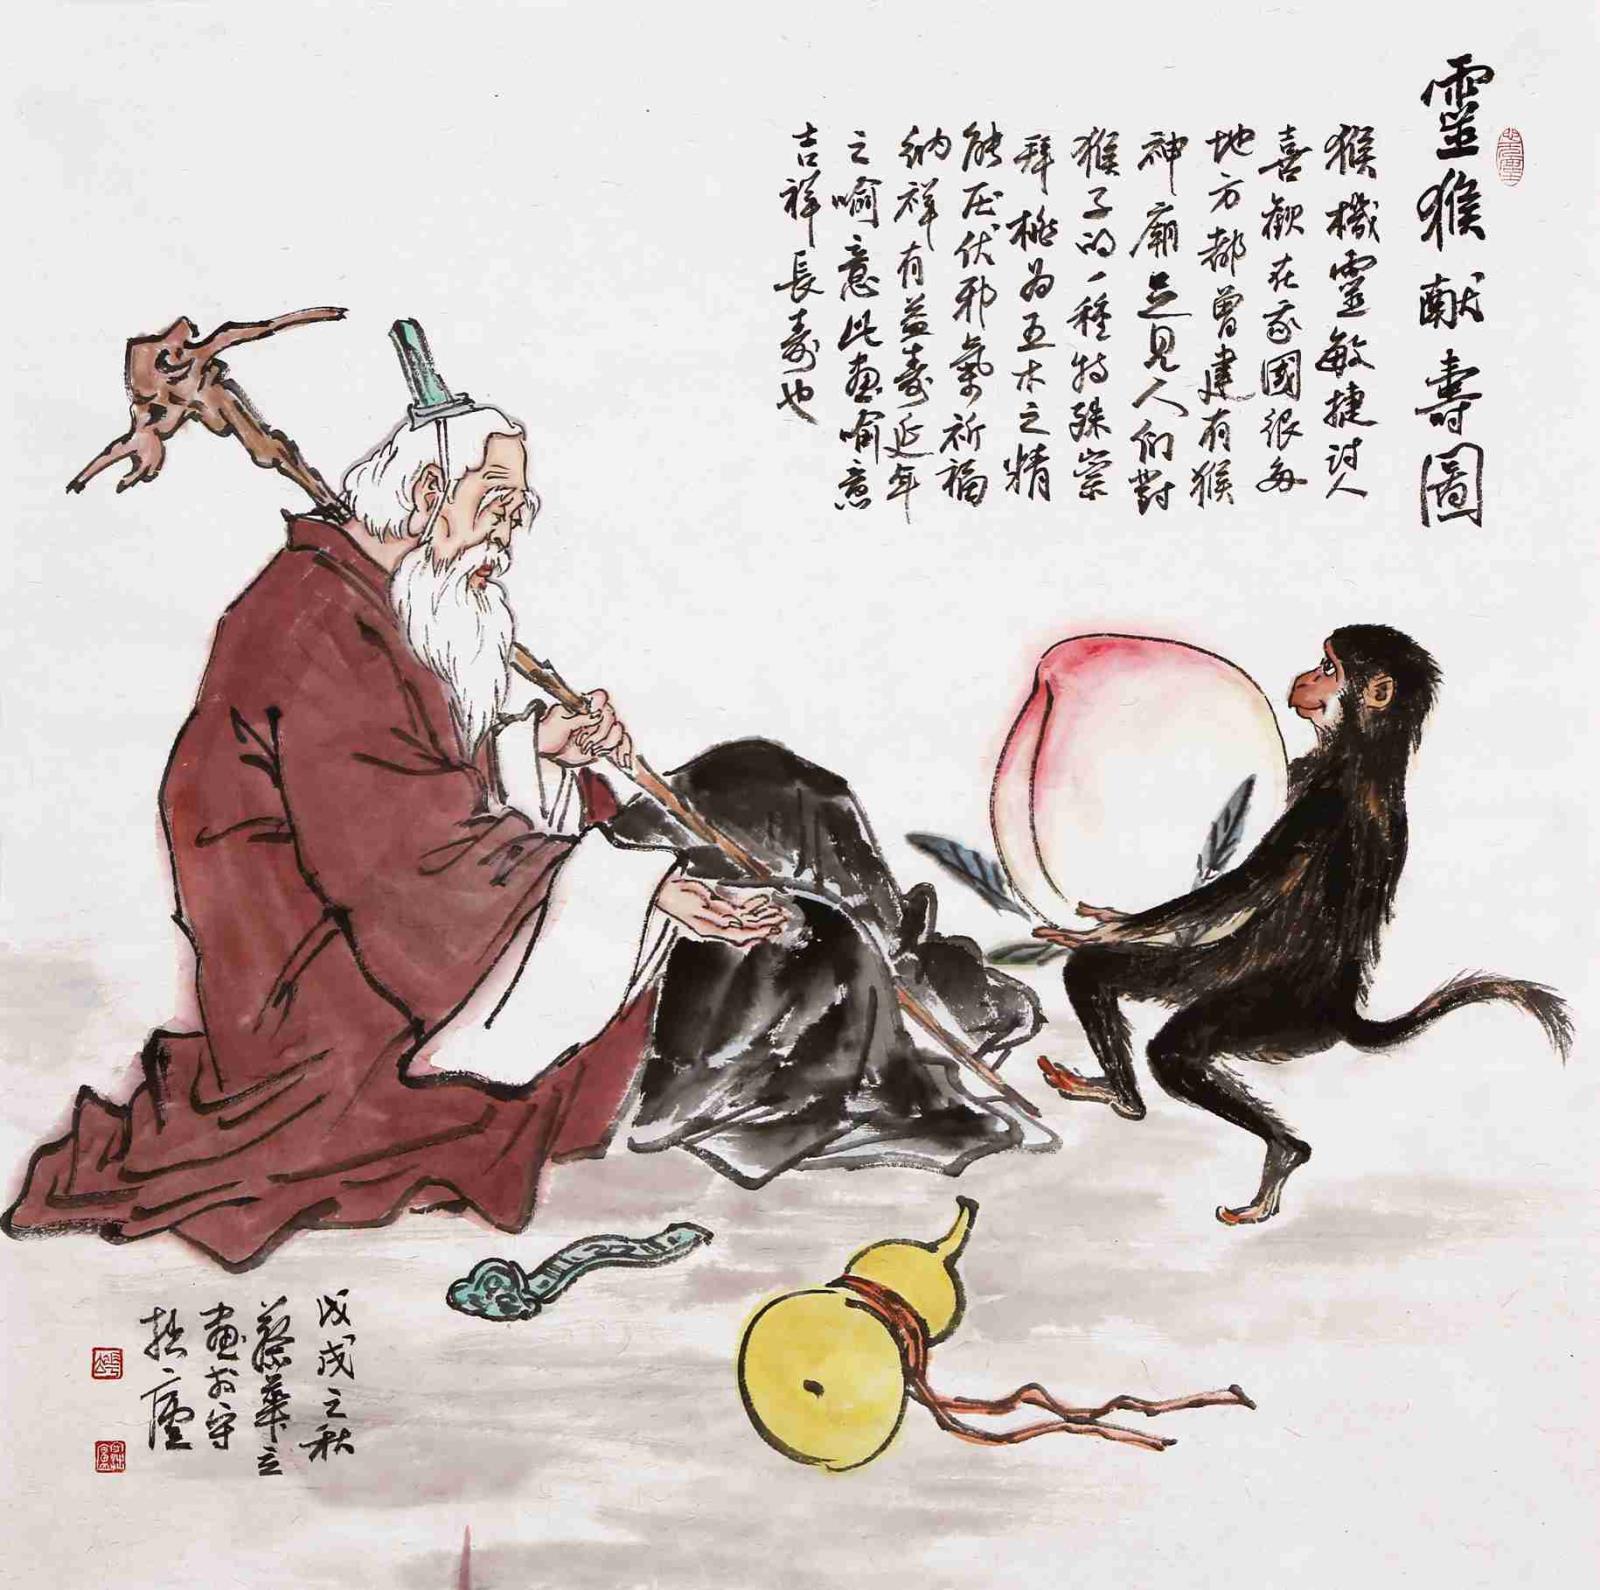 靈猴献壽圖
猴機靈敏捷討人
喜歡在我國很多
地方都曾建有猴
神廟足見人们對
猴子的一種特殊崇
拜桃為五木之精
能压伏邪氣祈福
納祥有益壽延年
之喻意此畫喻意
吉祥長壽也
戊戌之秋
蔡華立
畫於守
拙廬